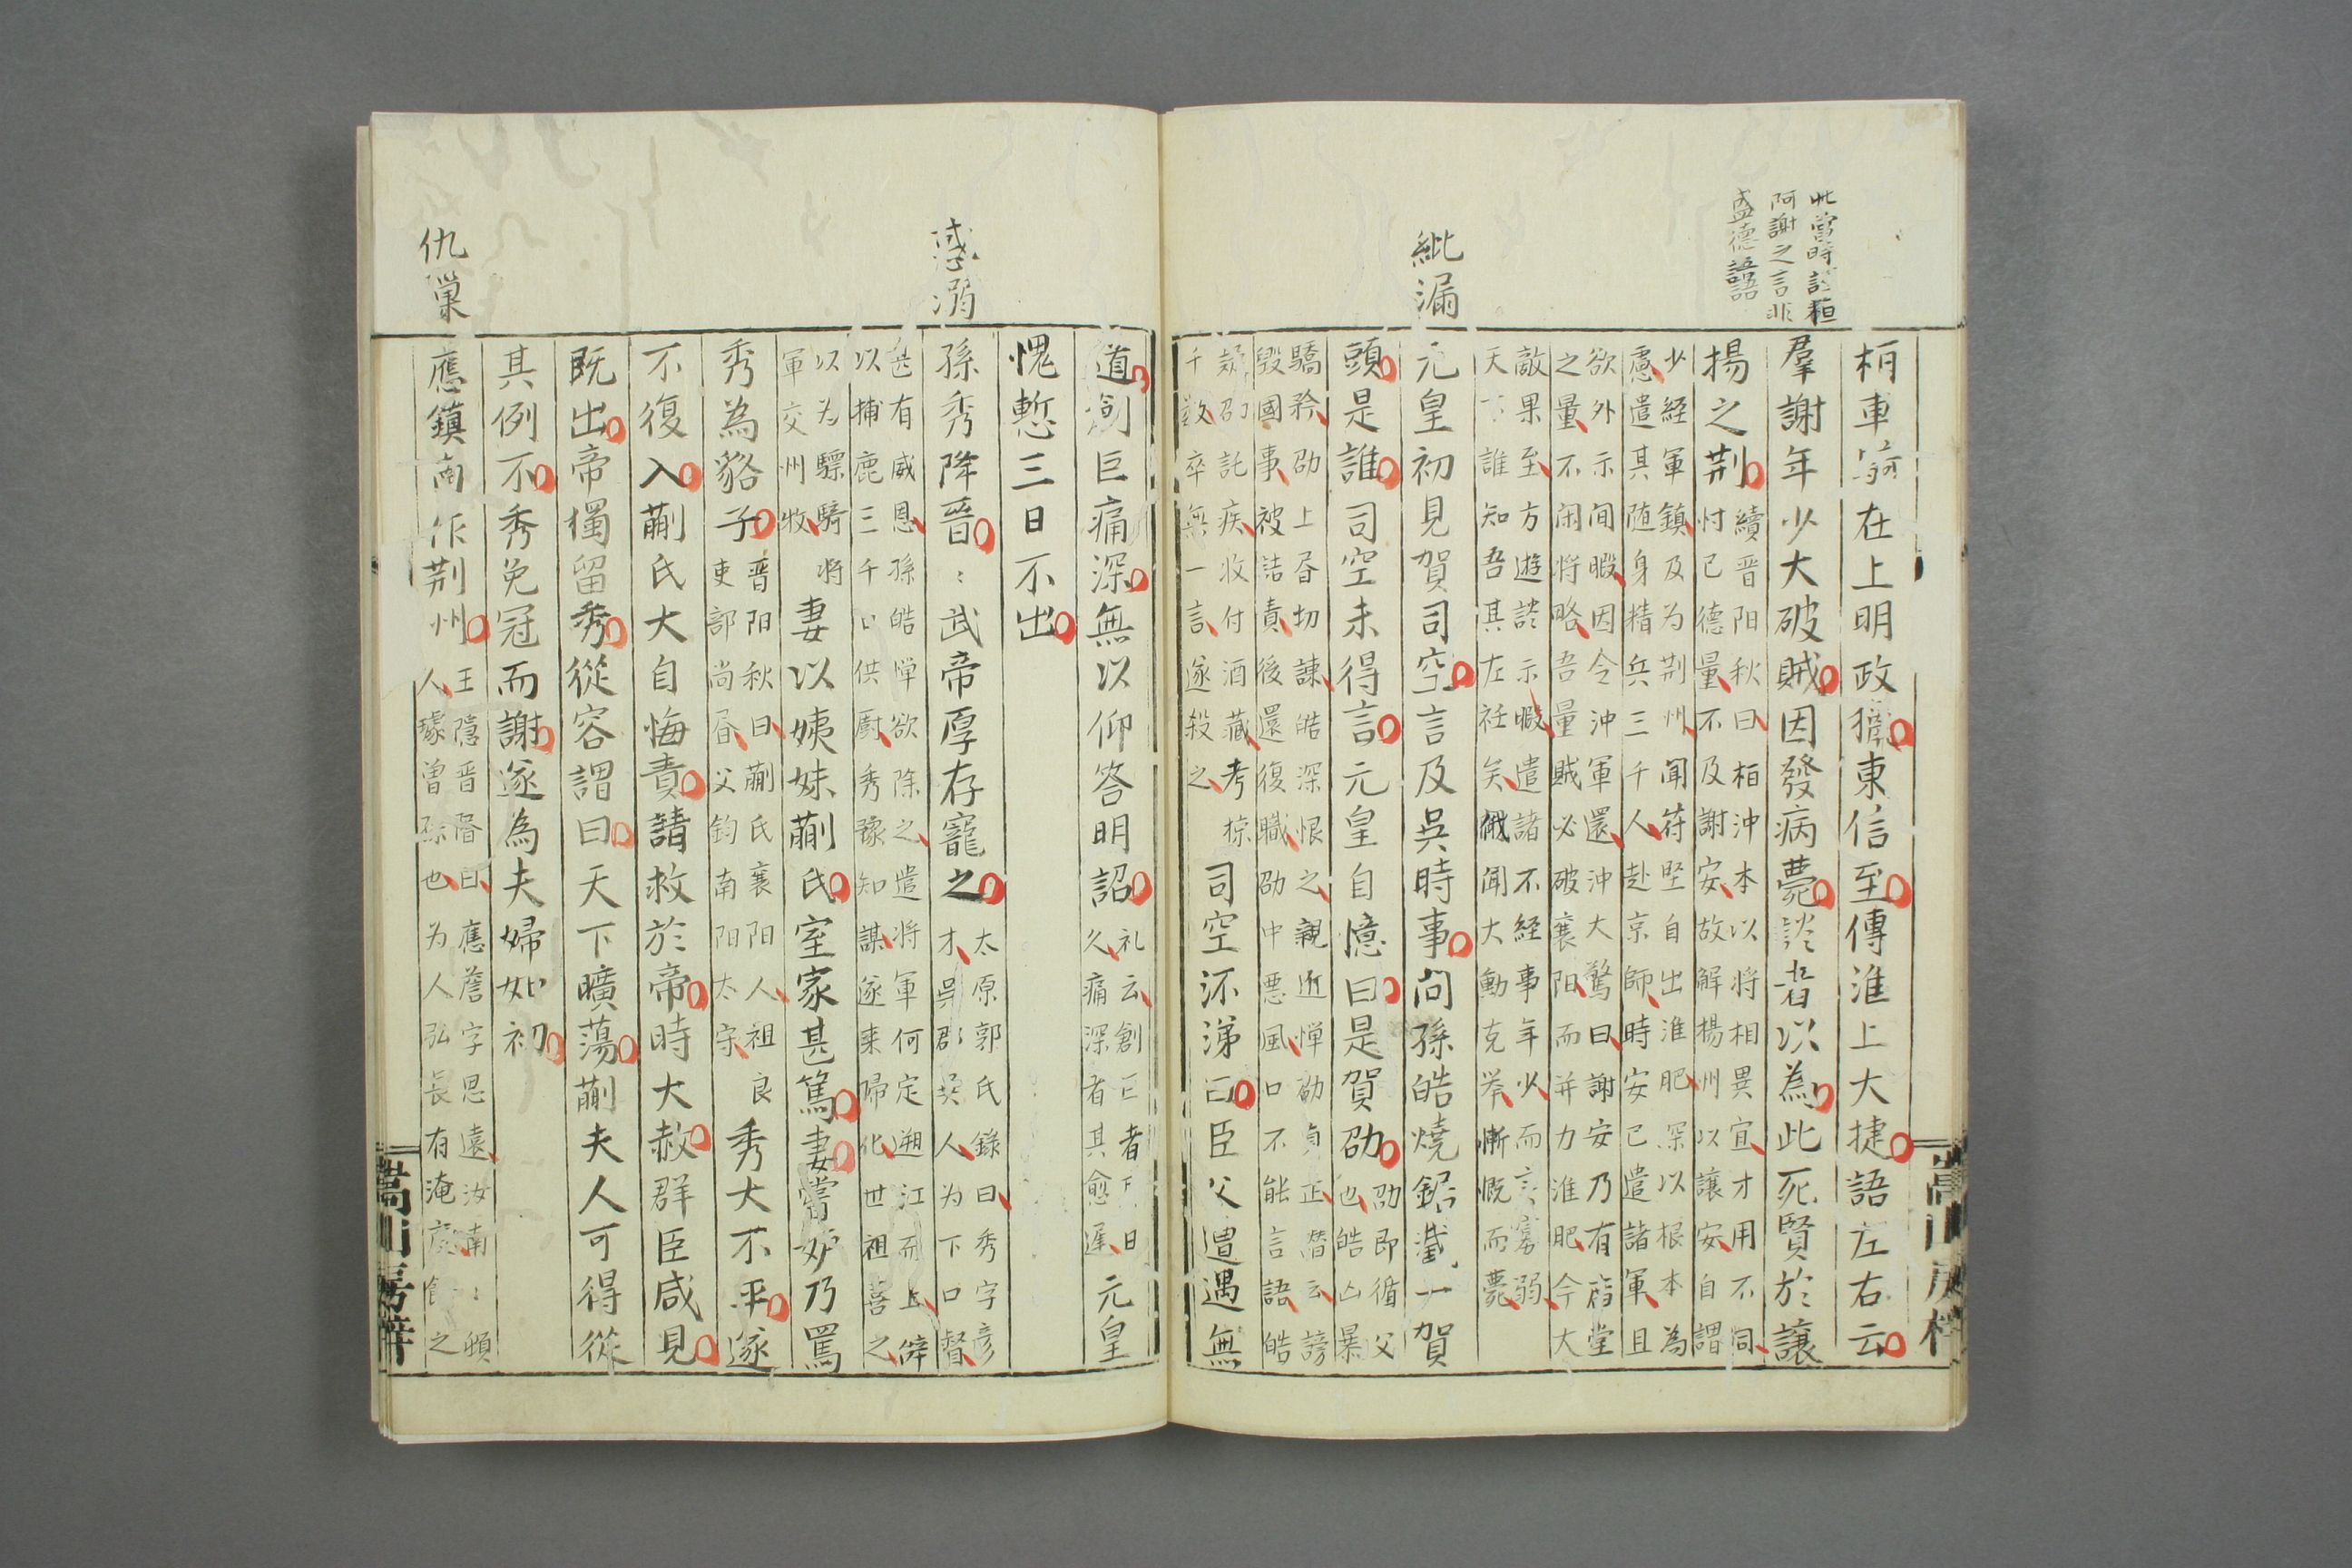 此當時討桓
阿謝之言非
盛德語
栢車騎在上明政獵東信至傳淮上大捷語左右云
羣謝年少大破賊因發病薨談者以為此死賢於讓
揚之荆
續晋阳秋曰栢沖本以将相異宜才用不同
忖已德量不及謝安故解楊州以讓安自謂
少経軍鎮及为荆州聞符堅自出淮肥深以根本為
慮遣其随身精兵三千人赴京師時安已遣諸軍且
欲外示间暇因令沖軍還沖大驚曰謝安乃有庿堂
之量不闲将略吾量賊必破襄阳而并力淮肥今大
敵果至方遊談示暇遣諸不経事年少而言寡弱
天下誰知吾其左衽矣俄聞大勳克挙慚慨而薨
紕漏
元皇初見賀司空言及吳時事问孫皓燒鋸截一賀
頭是誰司空未得言元皇自憶曰是賀劭
劭即循父
也皓凶暴
驕矜劭上書切諫皓深恨之親近惮劭貞正譖云謗
毀國事被詰責後還復職劭中悪風口不能言語皓
疑劭託疾收付酒蔵考掠
千数卒無一言遂殺之
司空流涕曰臣父遭遇無
道創巨痛深無以仰答明詔
礼云創巨者其日
久痛深者其愈遲
元皇
愧慙三日不出
惑溺
孫秀降晋〻武帝厚存寵之
太原郭氏錄曰秀字彦
才吳郡吴人为下口督
甚有威恩孫皓惮欲除之遣将軍何定遡江而上辭
以捕鹿三千口供厨秀豫知謀遂来歸化世祖喜之
以为驃騎将
軍交州牧
妻以姨妹蒯氏室家甚篤妻嘗妒乃罵
秀為貉子
晋阳秋曰蒯氏襄阳人祖良
吏部尚書父鈞南阳太守
秀大不平遂
不復入蒯氏大自悔責請救於帝時大赦群臣咸見
既出帝獨留秀從容謂曰天下曠蕩蒯夫人可得從
其例不秀免冠而謝遂為夫婦如初
仇𨻶
應鎮南作荆州
王隠晋書曰應詹字思遠汝南〻頓
人璩曾孫也为人弘長有淹度餙之
嵩山房梓
嵩山房梓